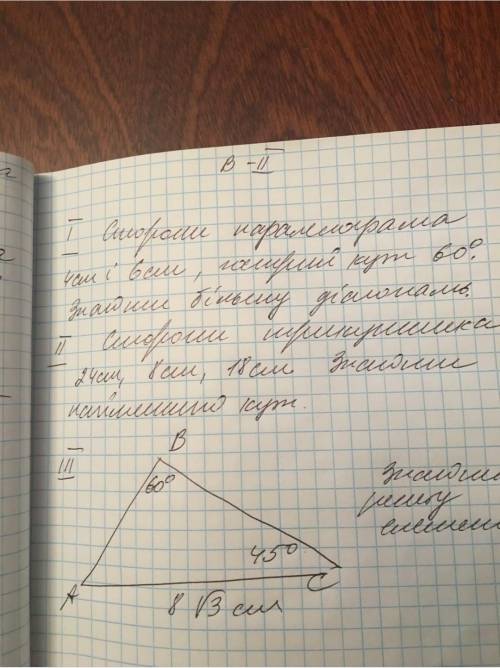 В - II
I Сторони паралелограма
4см і 6см, гострий кут 60°.
Знайдіть більшу діагональ.
II Сторони трикутника
24см, 8см, 18см Знайдіть
найменший кут.
III
B
60°
45°
A
C
8√3 см
Знайдіть
решту
елемен